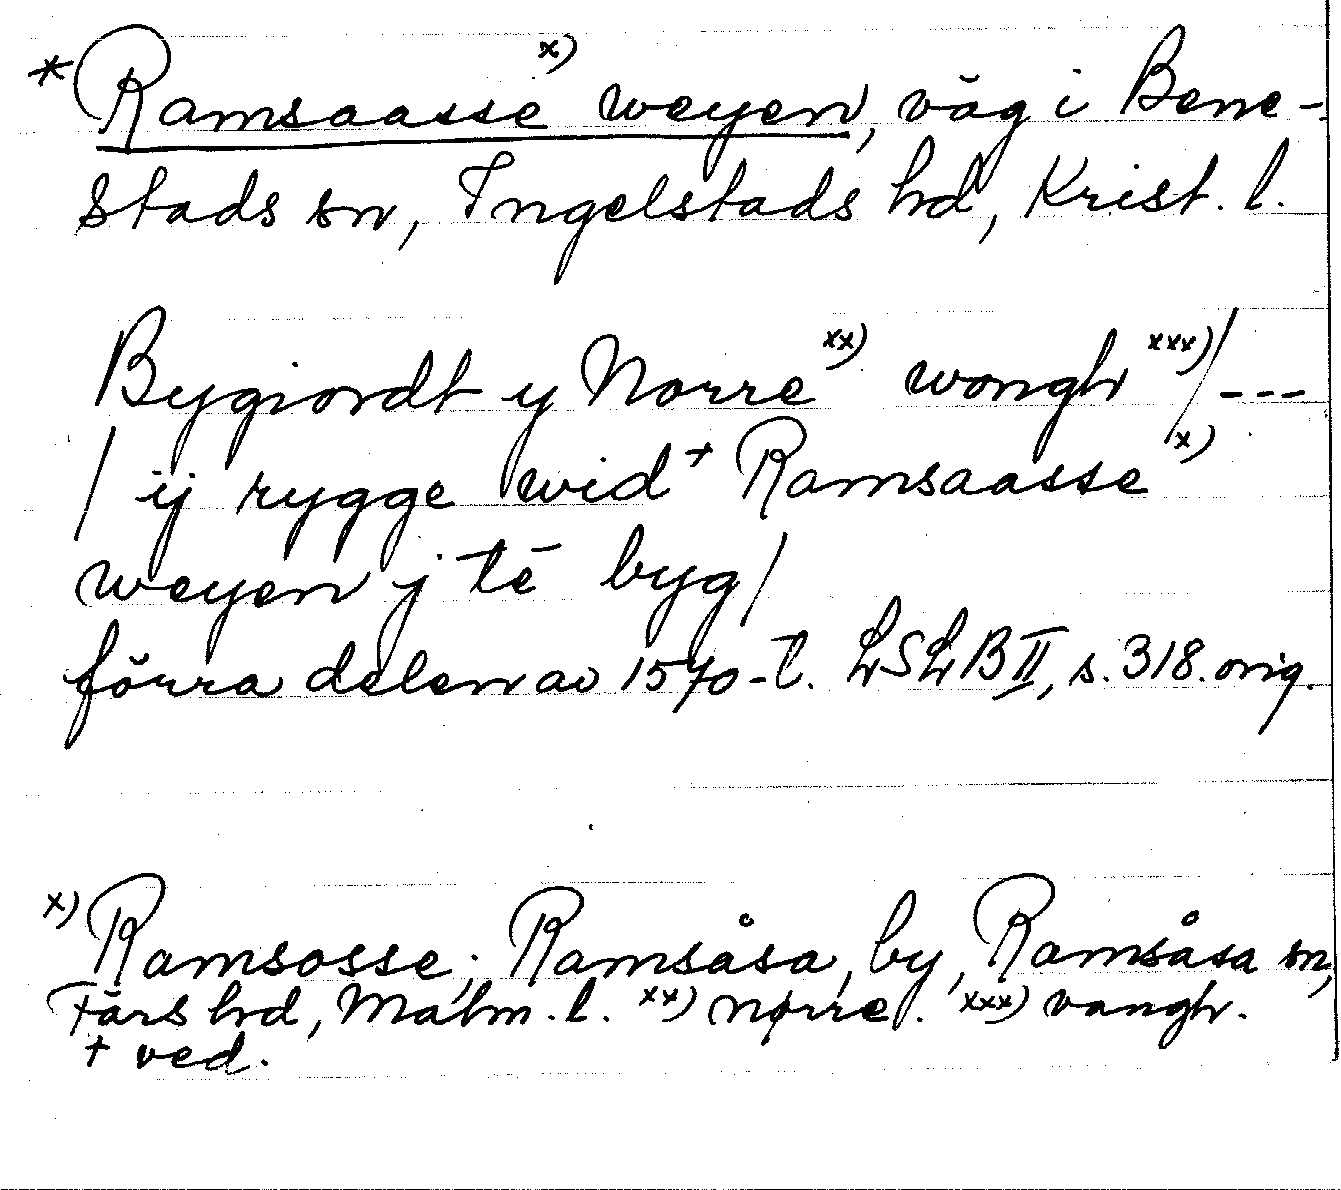 * Ramsaasse x) weyen, väg i Bene-
stads sn, Ingelstads hd, Krist. l.
Bygiordt y Norre xx) wongh xxx) / ---
/ ij rygge wid + Ramsaasse x)
weyen j tē byg /
förra delen av 1570-t. LSLB II, s. 318. orig.
x) Ramsosse; Ramsåsa, by, Ramsåsa sn,
Färs hd, Malm. l. xx) nørre. xxx) vangh.
+ ved.